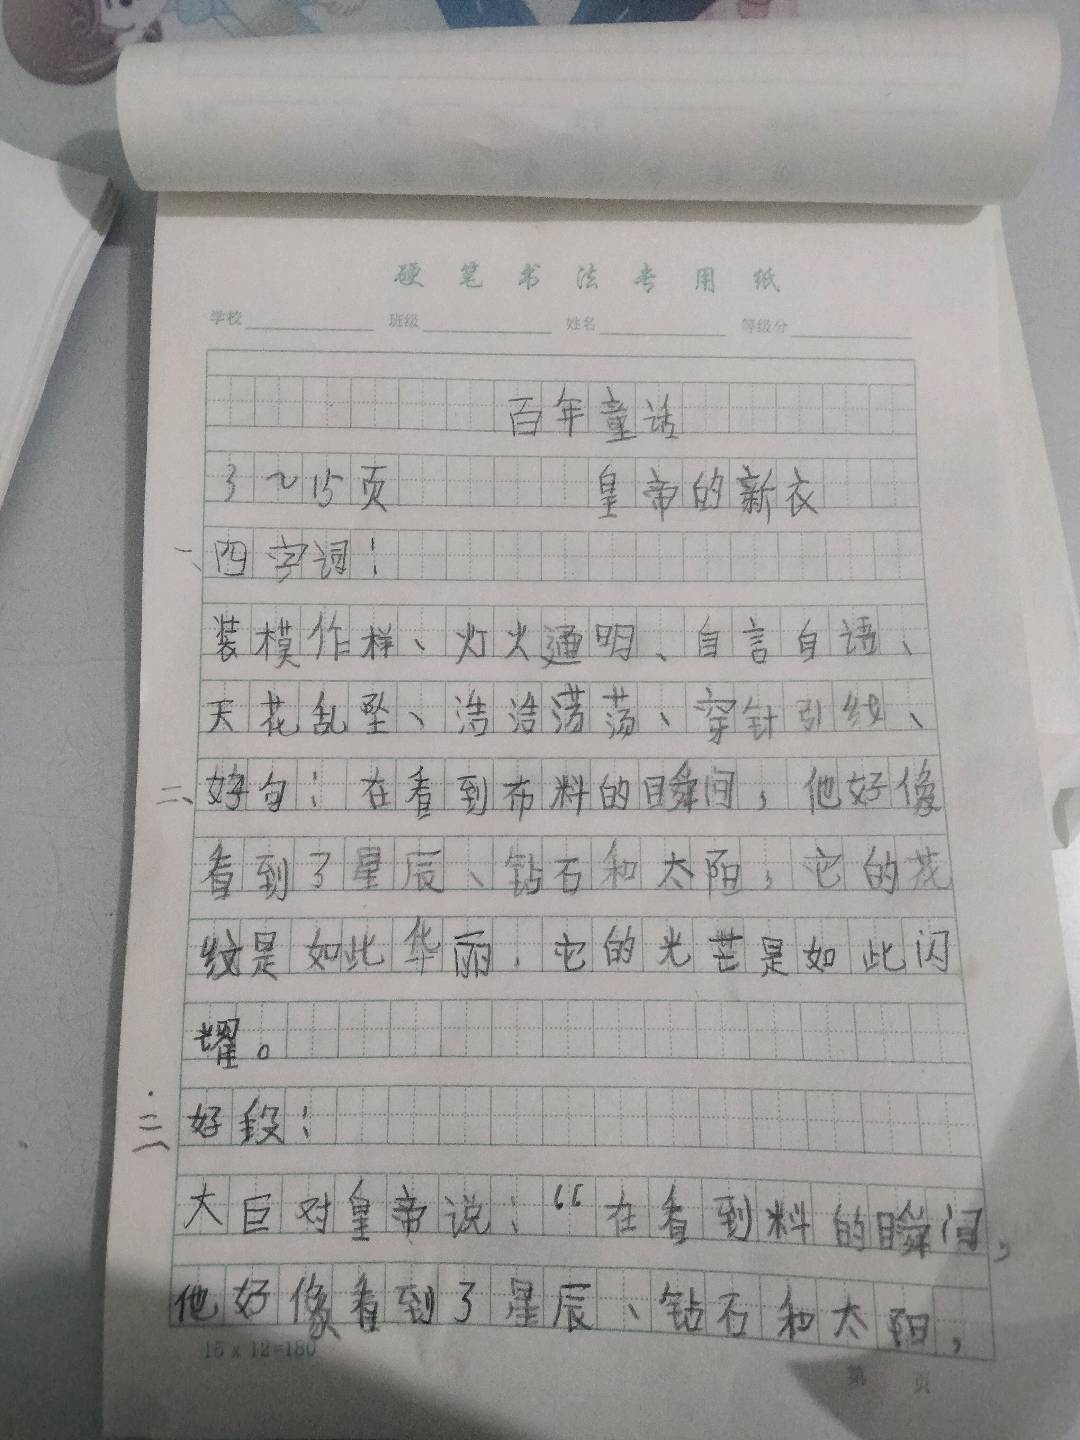 硬笔书法专用纸
学校 班级 姓名 等级分
百年童话
3~15页 皇帝的新衣
一、四字词:
装模作样、灯火通明、自言自语、
天花乱坠、浩浩荡荡、穿针引线、
二、好句:在看到布料的瞬间,他好像
看到了星辰、钻石和太阳,它的花
纹是如此华丽,它的光芒是如此闪
耀。
三、好段:
大巨对皇帝说:“在看到料的瞬间,
他好像看到了星辰、钻石和太阳,
15 x 12=180
第 页